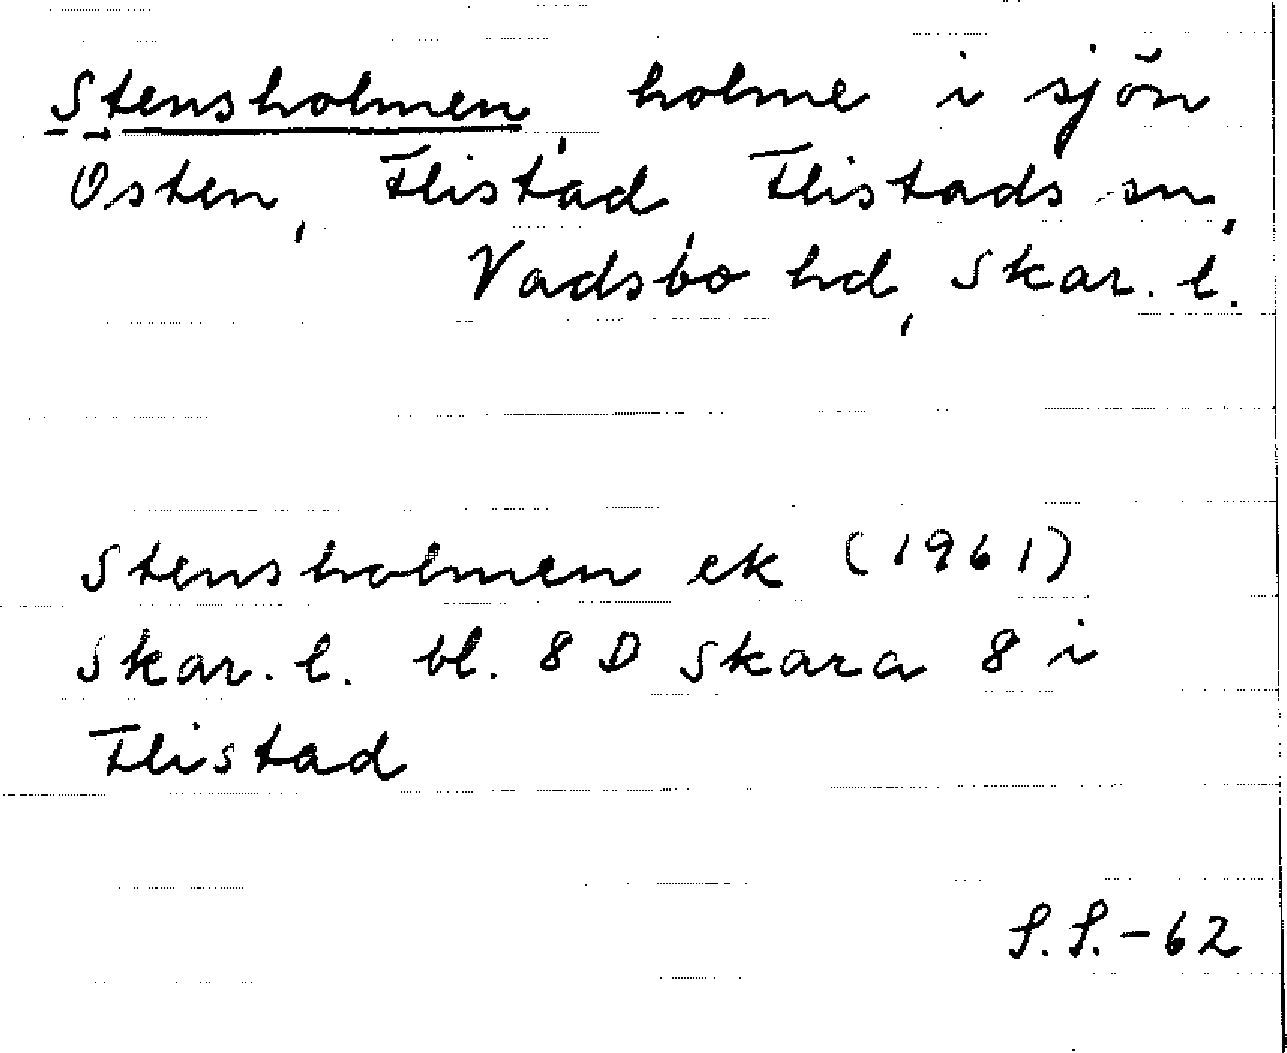 Stensholmen, holme i sjön
Östen, Flistad, Flistads sn,
Vadsbo hd, Skar. l.
Stensholmen ek (1961)
Skar. l. bl. 8 D Skara 8 i
Flistad
S.S.-62